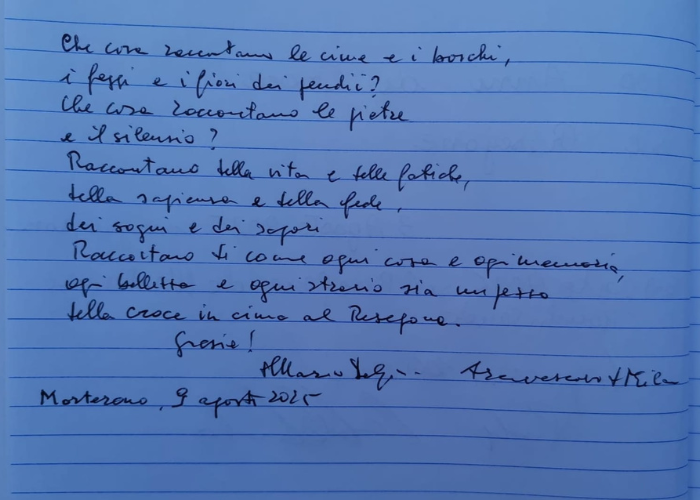 Che cosa raccontano le cime e i boschi,
i faggi e i fiori dei pendii?
Che cosa raccontano le pietre
e il silenzio?
Raccontano della vita e delle fatiche,
della sapienza e della fede,
dei sogni e dei sapori
Raccontano di come ogni cosa e ogni memoria,
ogni bellezza e ogni strazio sia un pezzo
della croce in cima al Resegone.
Grazie!
+ Mario Delpini Arcivescovo di Milano
Morterone, 9 agosto 2025